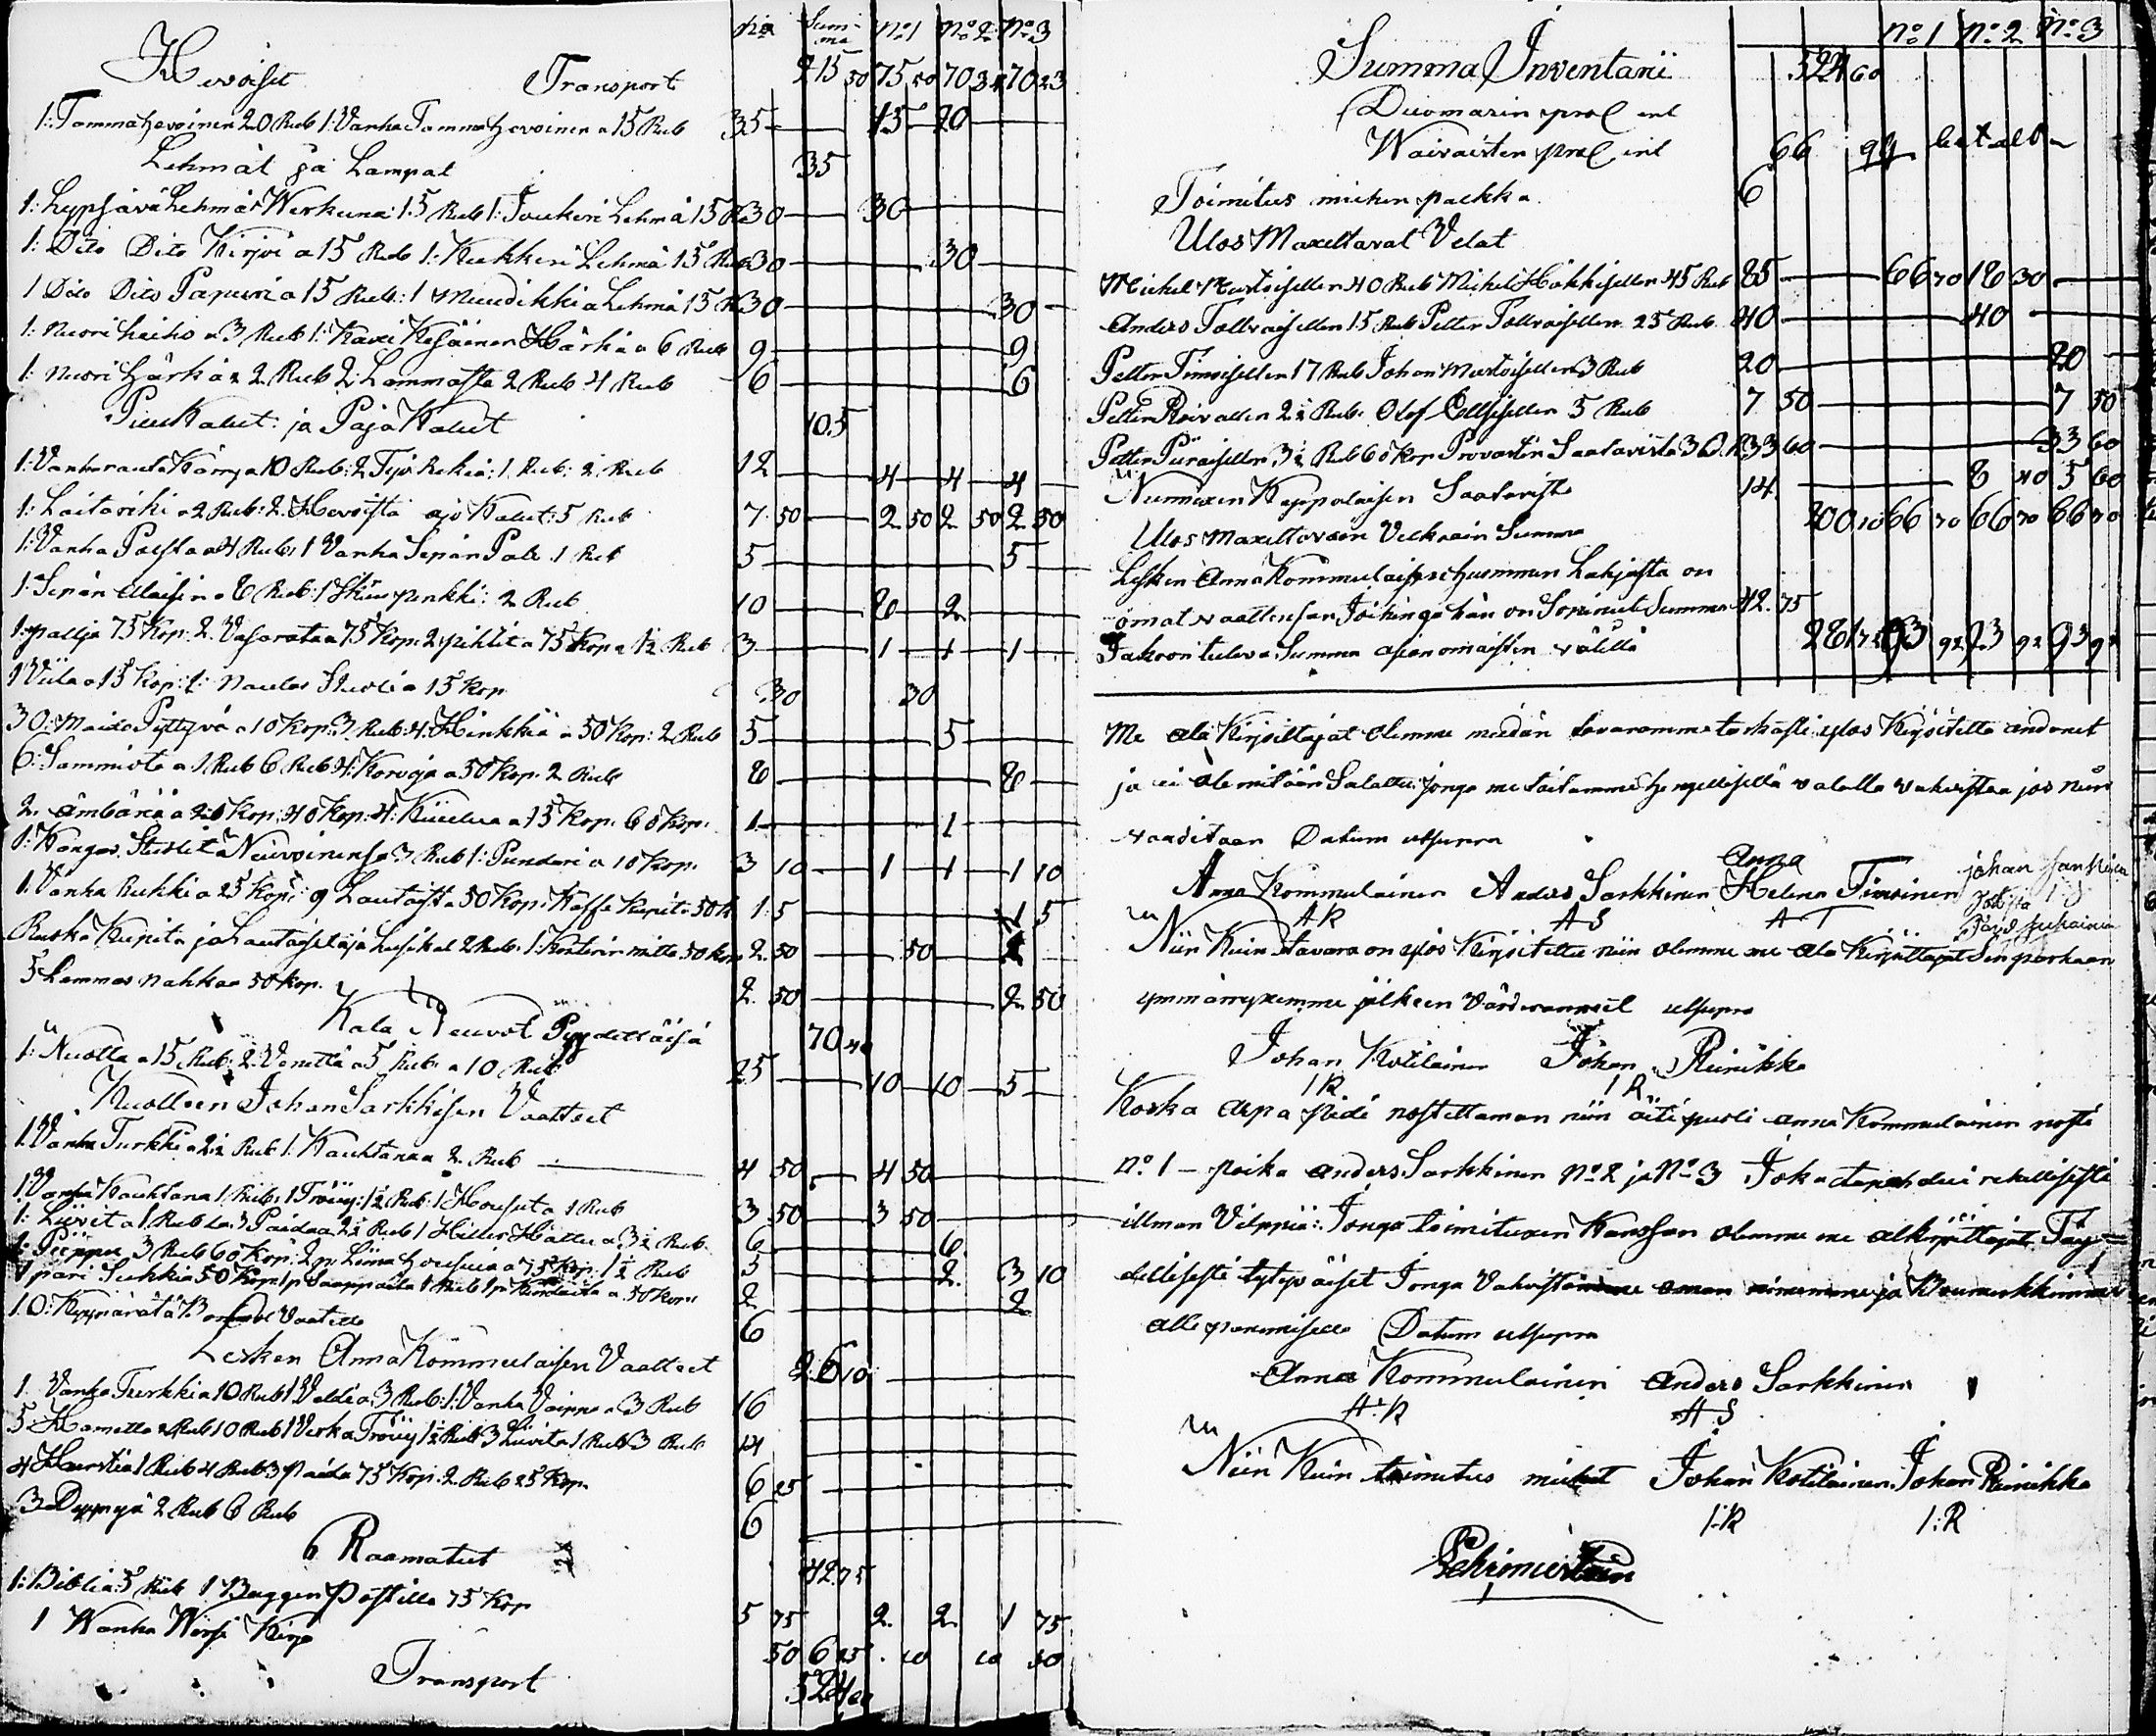 Hevoiset Transport Ria Sum-ma No 1 No 2 No 3
215 50 75 50 70 34 70 23
1: Tamma hevoinen 20 Rub 1: Vanha Tamma hevoinen a 15 Rub 35 15 20
Lehmät ja Lampat 35
1: Lypsävä Lehmä Werkuna: 15 Rub 1: Joukeri Lehmä 15 R 30 30
1: Dito Dito Kirjvi a 15 Rub 1: Kukkeri Lehmä 15 Rub 30 30
1 Dito Dito Papuri a 15 Rub: 1 Muudikki a Lehmä 15 R 30 30
1: nuori haiho a 3 Rub 1: Kaxi Kesäinen Härkä a 6 Rub 9 9
1: nuori härkä a 2 Rub 2: Lammasta 2 Rub 4 Rub 6 6
Puu Kalut: ja Paja Kalut 105
1: Vanha rauta Kärrya 10 Rub: 2 Työ Rekiä: 1 Rub: 2 Rub 12 4 4 4
1: Laitariki a 2 Rub: 2. Hevoista ajo Kalut: 5 Rub 7 50 2 50 2 50 2 50
1: Vanha Palsta a 4 Rub: 1 Vanha Sepän Pale 1 Rub 5 5
1: Sepän Alaisin a 8 Rub: 1 Skuu penkki: 2 Rub 10 8 2
1: pallja 75 Kop: 2. Vasarata a 75 Kop: 2 pihlit a 75 Kop a 1½ Rub 3 1 1 1
1 Viila a 15 Kop: 1: Naulas Stuoli a 15 Kop 30 30
30: Maido Pyttyvä a 10 Kop: 3 Rub: 4: Hinkkiä a 50 Kop: 2 Rub 5 5
6: Sammiota a 1 Rub 6 Rub 4: Korvoja a 50 Kop. 2 Rub 8 8
2. ämbäriä a 20 Kop: 40 Kop: 4: Kiuelua a 15 Kop. 60 Kop. 1 1
1: Kangas Stuolit Neuvoinensa 3 Rub 1: Pundari a 10 Kop. 3 10 1 1 1 10
1: Vanha Rukki a 25 Kop: 9 Lautaista 50 Kop: Kaffe Kupita 50 K 1: 5 1 5
Ruska Kupita ja Lautaiseta ja Lusikat 2 Rub: 1: Kontorin mitta 50 kop 2. 50 50 2
5 Lammas nahkaa 50 Kop. 2. 50 2 50
Kala Neuvot Pyydettäisä 70 40
1: Nuotta a 15 Rub: 2. Venettä a 5 Rub a 10 Rub 25 10 10 5
Kuolleen Johan Sarkkisen Vaatteet
1 Vanha Turkki a 2½ Rub 1: Kauhtana a 2 Rub 4 50 4 50
1 Vanha Kauhtana 1 Rub: 1 Tröijy: 1½ Rub 1 Housuta 1 Rub 3 50 3 50
1: Liivit a 1 Rub 3 Paidaa 2½ Rub 1 Hiller Hattu a 3½ Rub 6 6
1: Piippu 3 Rub 60 Kop: 2 p: Liina housuia a 75 Kop 1½ Rub 5 2. 3 10
1 pari Sukkia 50 Kop 1 p Saappaita 1 Rub 1 p Kindaita a 50 Kop: 2 2
10: Kyynärätä Vaatetta 6
Lesken Anna Kommulaisen Vaatteet 26 10
1 Vanha Turkki a 10 Rub 1 Valdi a 3 Rub: 1: Vanha Vaippa a 3 Rub 16
5 Hametta 2 Rub 10 Rub 1 Verka Tröijy 1½ Rub 3 Liivita 1 Rub 3 Rub 14
4 Hurstia 1 Rub 4 Rub 3 paida 75 Kop. 2 Rub 25 Kop. 6 25
3 Dyynyä 2 Rub 6 Rub 6
Raamatut 42.75
1: Biblia 5 Rub 1 Baggen Postilla 75 Kop 5 75 2. 2 1 75
1 Wanha Wirsi Kirja 50 6 25
Transport 524 60
No 1 No 2 No 3
Summa Inventarii 524 60
Duomarin pro Cent
Waivaisten pro Cent 66 94 betald
Toimitus miehen palkka 6
Ulos Maxettavat Velat
Mickel Mustoisellen 40 Rub Mickel Hakkisellen 45 Rub 85 66 70 18 30
Anders Tolvaisellen 15 Rub Petter Tolvaisellen 25 Rub 40 40
Petter Timoisellen 17 Rub Johan Mustoisellen 3 Rub 20 20
Petter Roivallen 2½ Rub: Olof Ellsisellen 5 Rub 7 50 7 50
Petter Piiraisellen 3½ Rub 60 Kop Provastin Saatavista 30 R 33 60 33 60
Nummixen Keppolaisen Saatavista 14 8 40 5 60
Ulos Maxettavain Velkain Summa 200 10 66 70 66 70 66 70
Lesken Anna Kommulaisen huomnen Lahjasta on
omat vaattensa Joihinga hän on Sopinut Summa 42. 75
Jakoon tuleva Summa asianomaisten välillä 281 75 93 92 93 92 93 92
Me ala Kirjoittajat olemme meidän tavaramme tarkasti ylös Kirjoitetta andanet
ja ei ole mitään Salattu: jonga me taitamme hengellisellä valalla vahvistaa jos niin
vaaditaan Datum utsupra
Anna Kommulainen Anders Sarkkinen Anna Helena Timoinen johan
A K A S A T
Niin Kuin tavara on ylös Kirjoitettu niin olemme me ala Kirjoittajat Sen parhaan
ymmärryxemme jälkeen Värderanneet utsupra
Johan Kotilainen Johan Reinikka
I K I R
Koska Arpa pidi nostettaman niin äiti puoli Anna Kommulainen nosti
no 1 – poika Anders Sarkkinen No 2 ja No 3 Joka tapahdui rehellisesti
ilman Vilppiä: Jonga toimituxen Kanssan olemme me alkirjoittajat Täy=
dellisesti tytyväiset Jonga Vahvistamme oman nimemme ja Boumerkkimme
alle panemisella Datum utsupra
Anna Kommulainen Anders Sarkkinen
A. K A S
Niin Kuin toimitus miehet Johan Kotilainen Johan Reinikka
I: K I: R